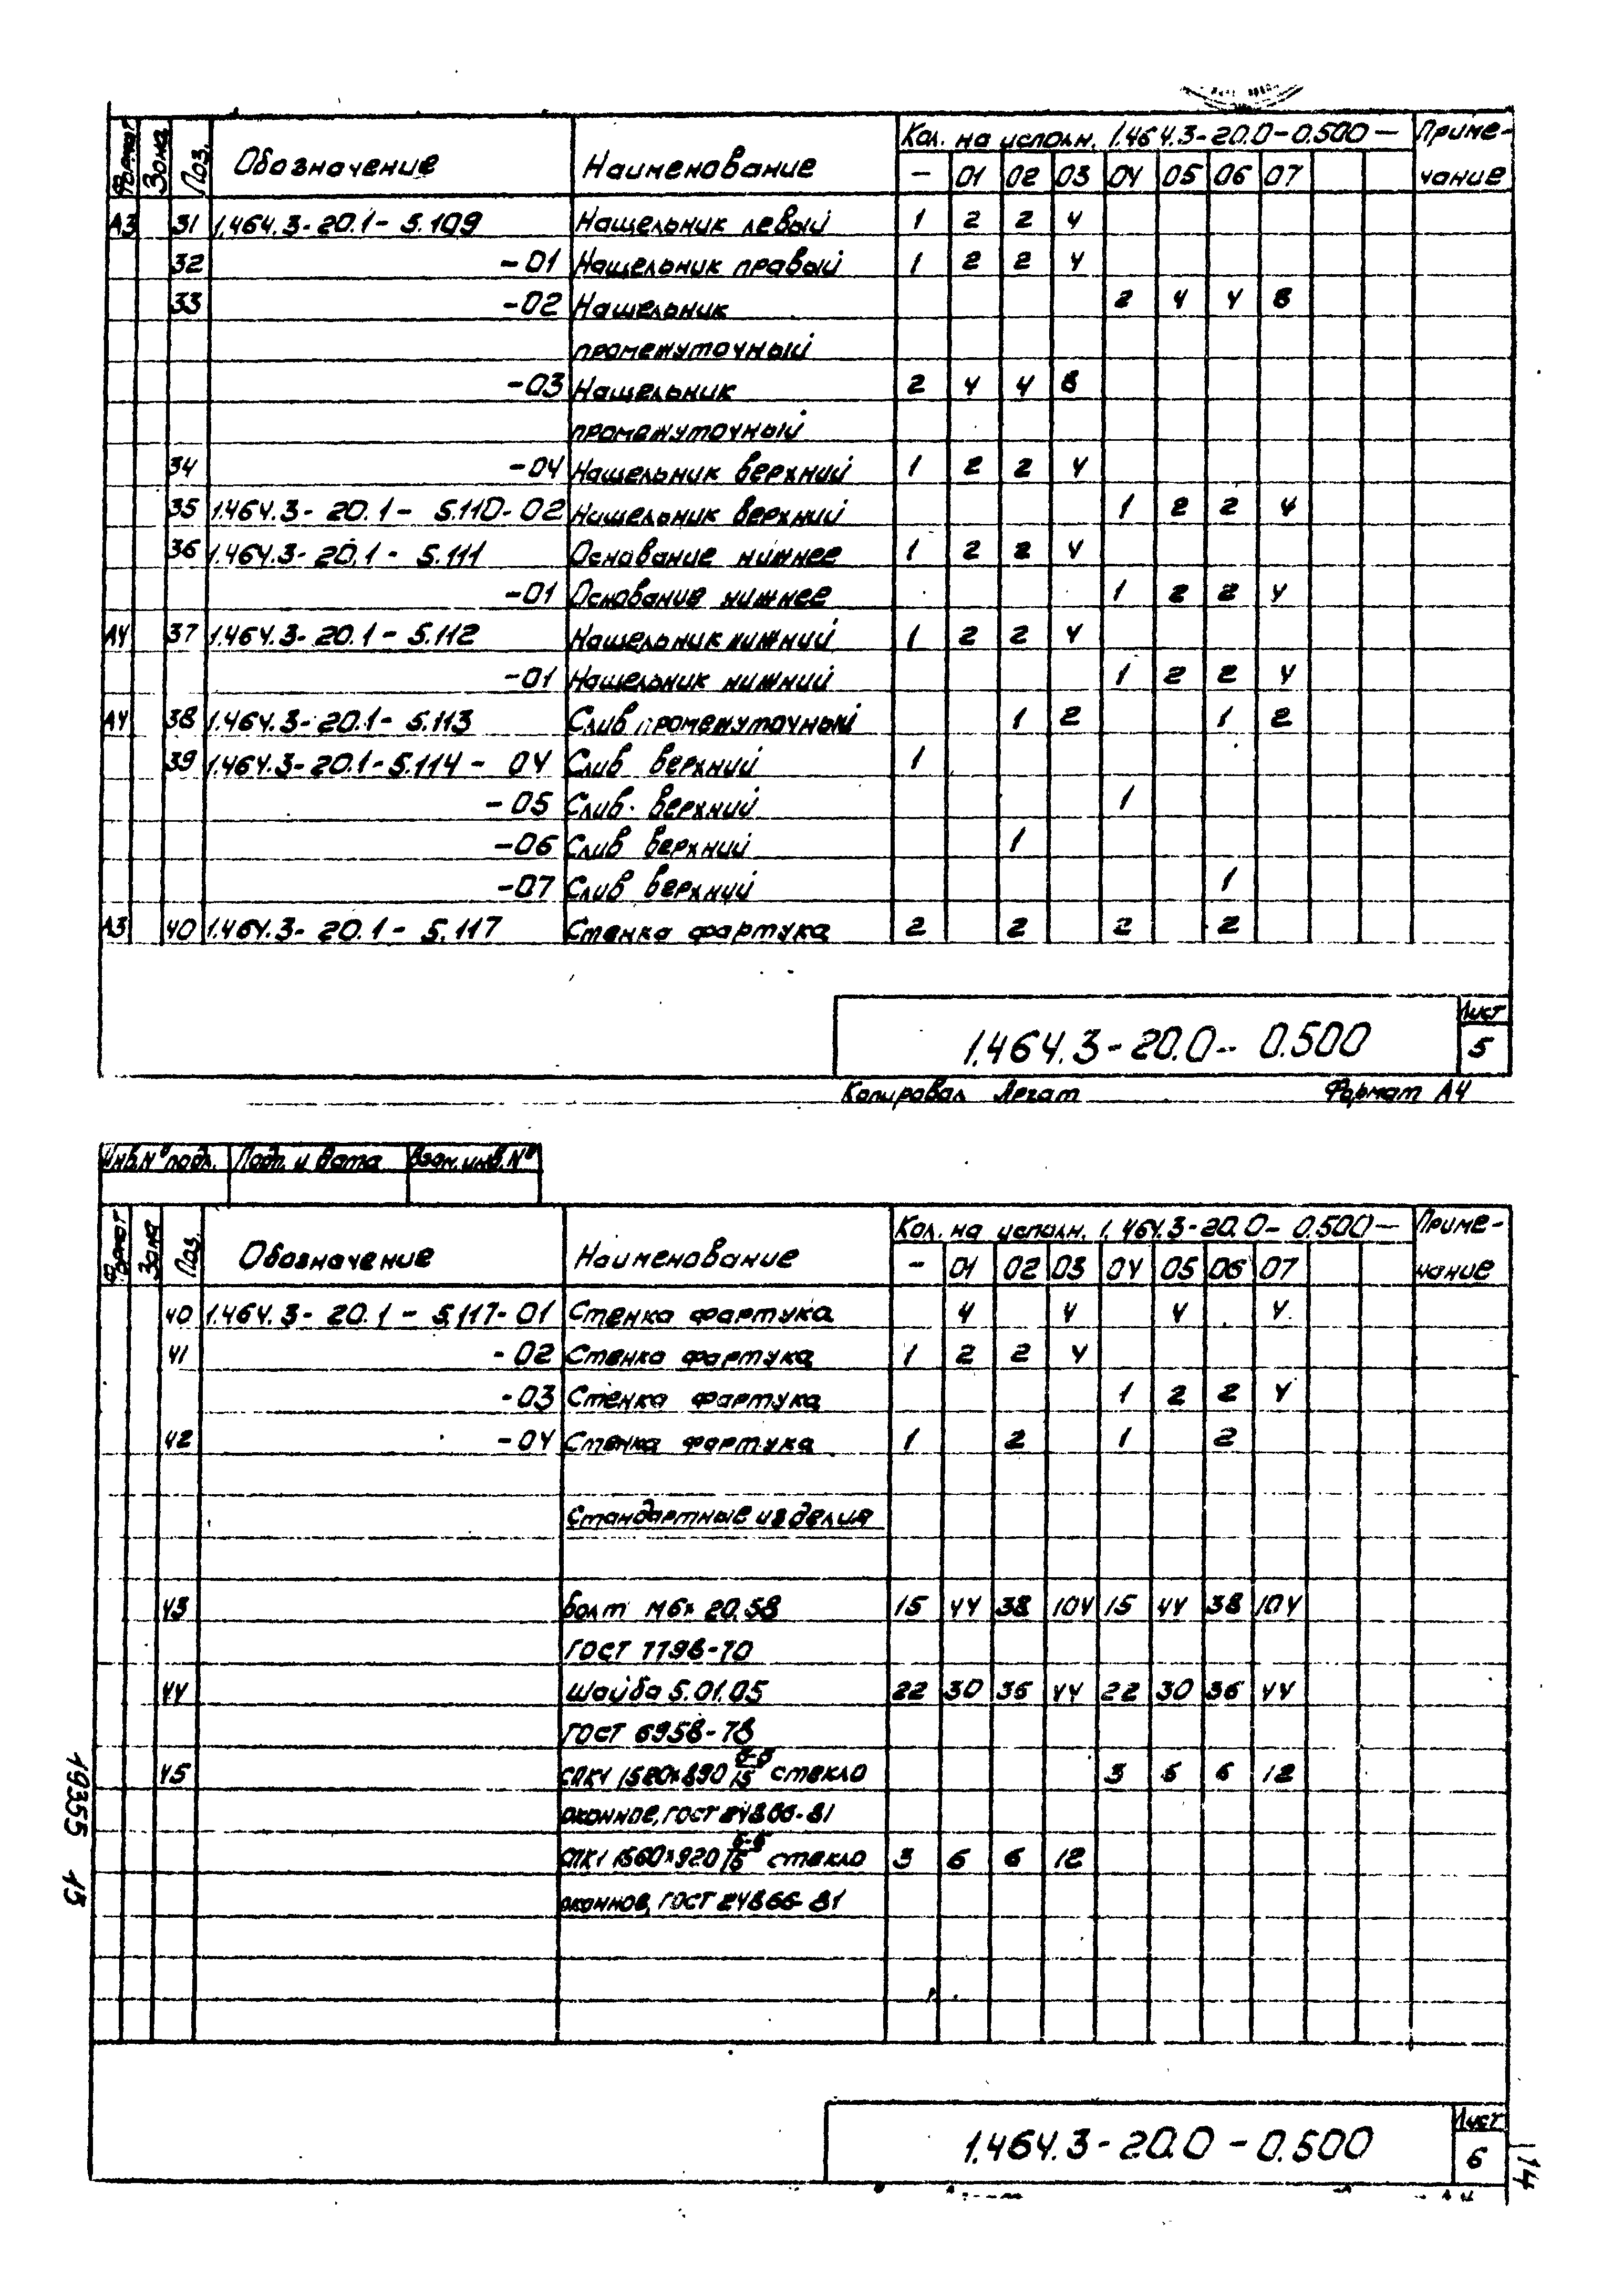 Формат Зона Поз. Обозначение Наименование Кол. на исполн. 1.464.3-20.0-0.500— Приме-
— 01 02 03 04 05 06 07 чание
А3 31 1.464.3-20.1-5.109 Нащельник левый 1 2 2 4
32 -01 Нащельник правый 1 2 2 4
33 -02 Нащельник 2 4 4 8
промежуточный
-03 Нащельник 2 4 4 8
промежуточный
34 -04 Нащельник верхний 1 2 2 4
35 1.464.3-20.1-5.110-02 Нащельник верхний 1 2 2 4
36 1.464.3-20.1-5.111 Основание нижнее 1 2 2 4
-01 Основание нижнее 1 2 2 4
А4 37 1.464.3-20.1-5.112 Нащельник нижний 1 2 2 4
-01 Нащельник нижний 1 2 2 4
А4 38 1.464.3-20.1-5.113 Слив промежуточный 1 2 1 2
39 1.464.3-20.1-5.114-04 Слив верхний 1
-05 Слив верхний 1
-06 Слив верхний 1
-07 Слив верхний 1
А3 40 1.464.3-20.1-5.117 Стенка фартука 2 2 2 2
1.464.3-20.0-0.500 Лист
5
Копировал Формат А4
Инв.№ подл. Подп. и дата Взам.инв.№
Формат Зона Поз. Обозначение Наименование Кол. на исполн. 1.464.3-20.0-0.500— Приме-
— 01 02 03 04 05 06 07 чание
40 1.464.3-20.1-5.117-01 Стенка фартука 4 4 4 4
41 -02 Стенка фартука 1 2 2 4
-03 Стенка фартука 1 2 2 4
42 -04 Стенка фартука 1 2 1 2
Стандартные изделия
43 Болт М6×20.58 15 44 38 104 15 44 38 104
ГОСТ 7798-70
44 Шайба 5.01.05 22 30 36 44 22 30 36 44
ГОСТ 6958-78
45 СПК1 1520×890 стекло 3 6 6 12
оконное, ГОСТ 24866-81
СПК1 1560×920 стекло 3 6 6 12
оконное, ГОСТ 24866-81
1.464.3-20.0-0.500 Лист
6
19355 15
14